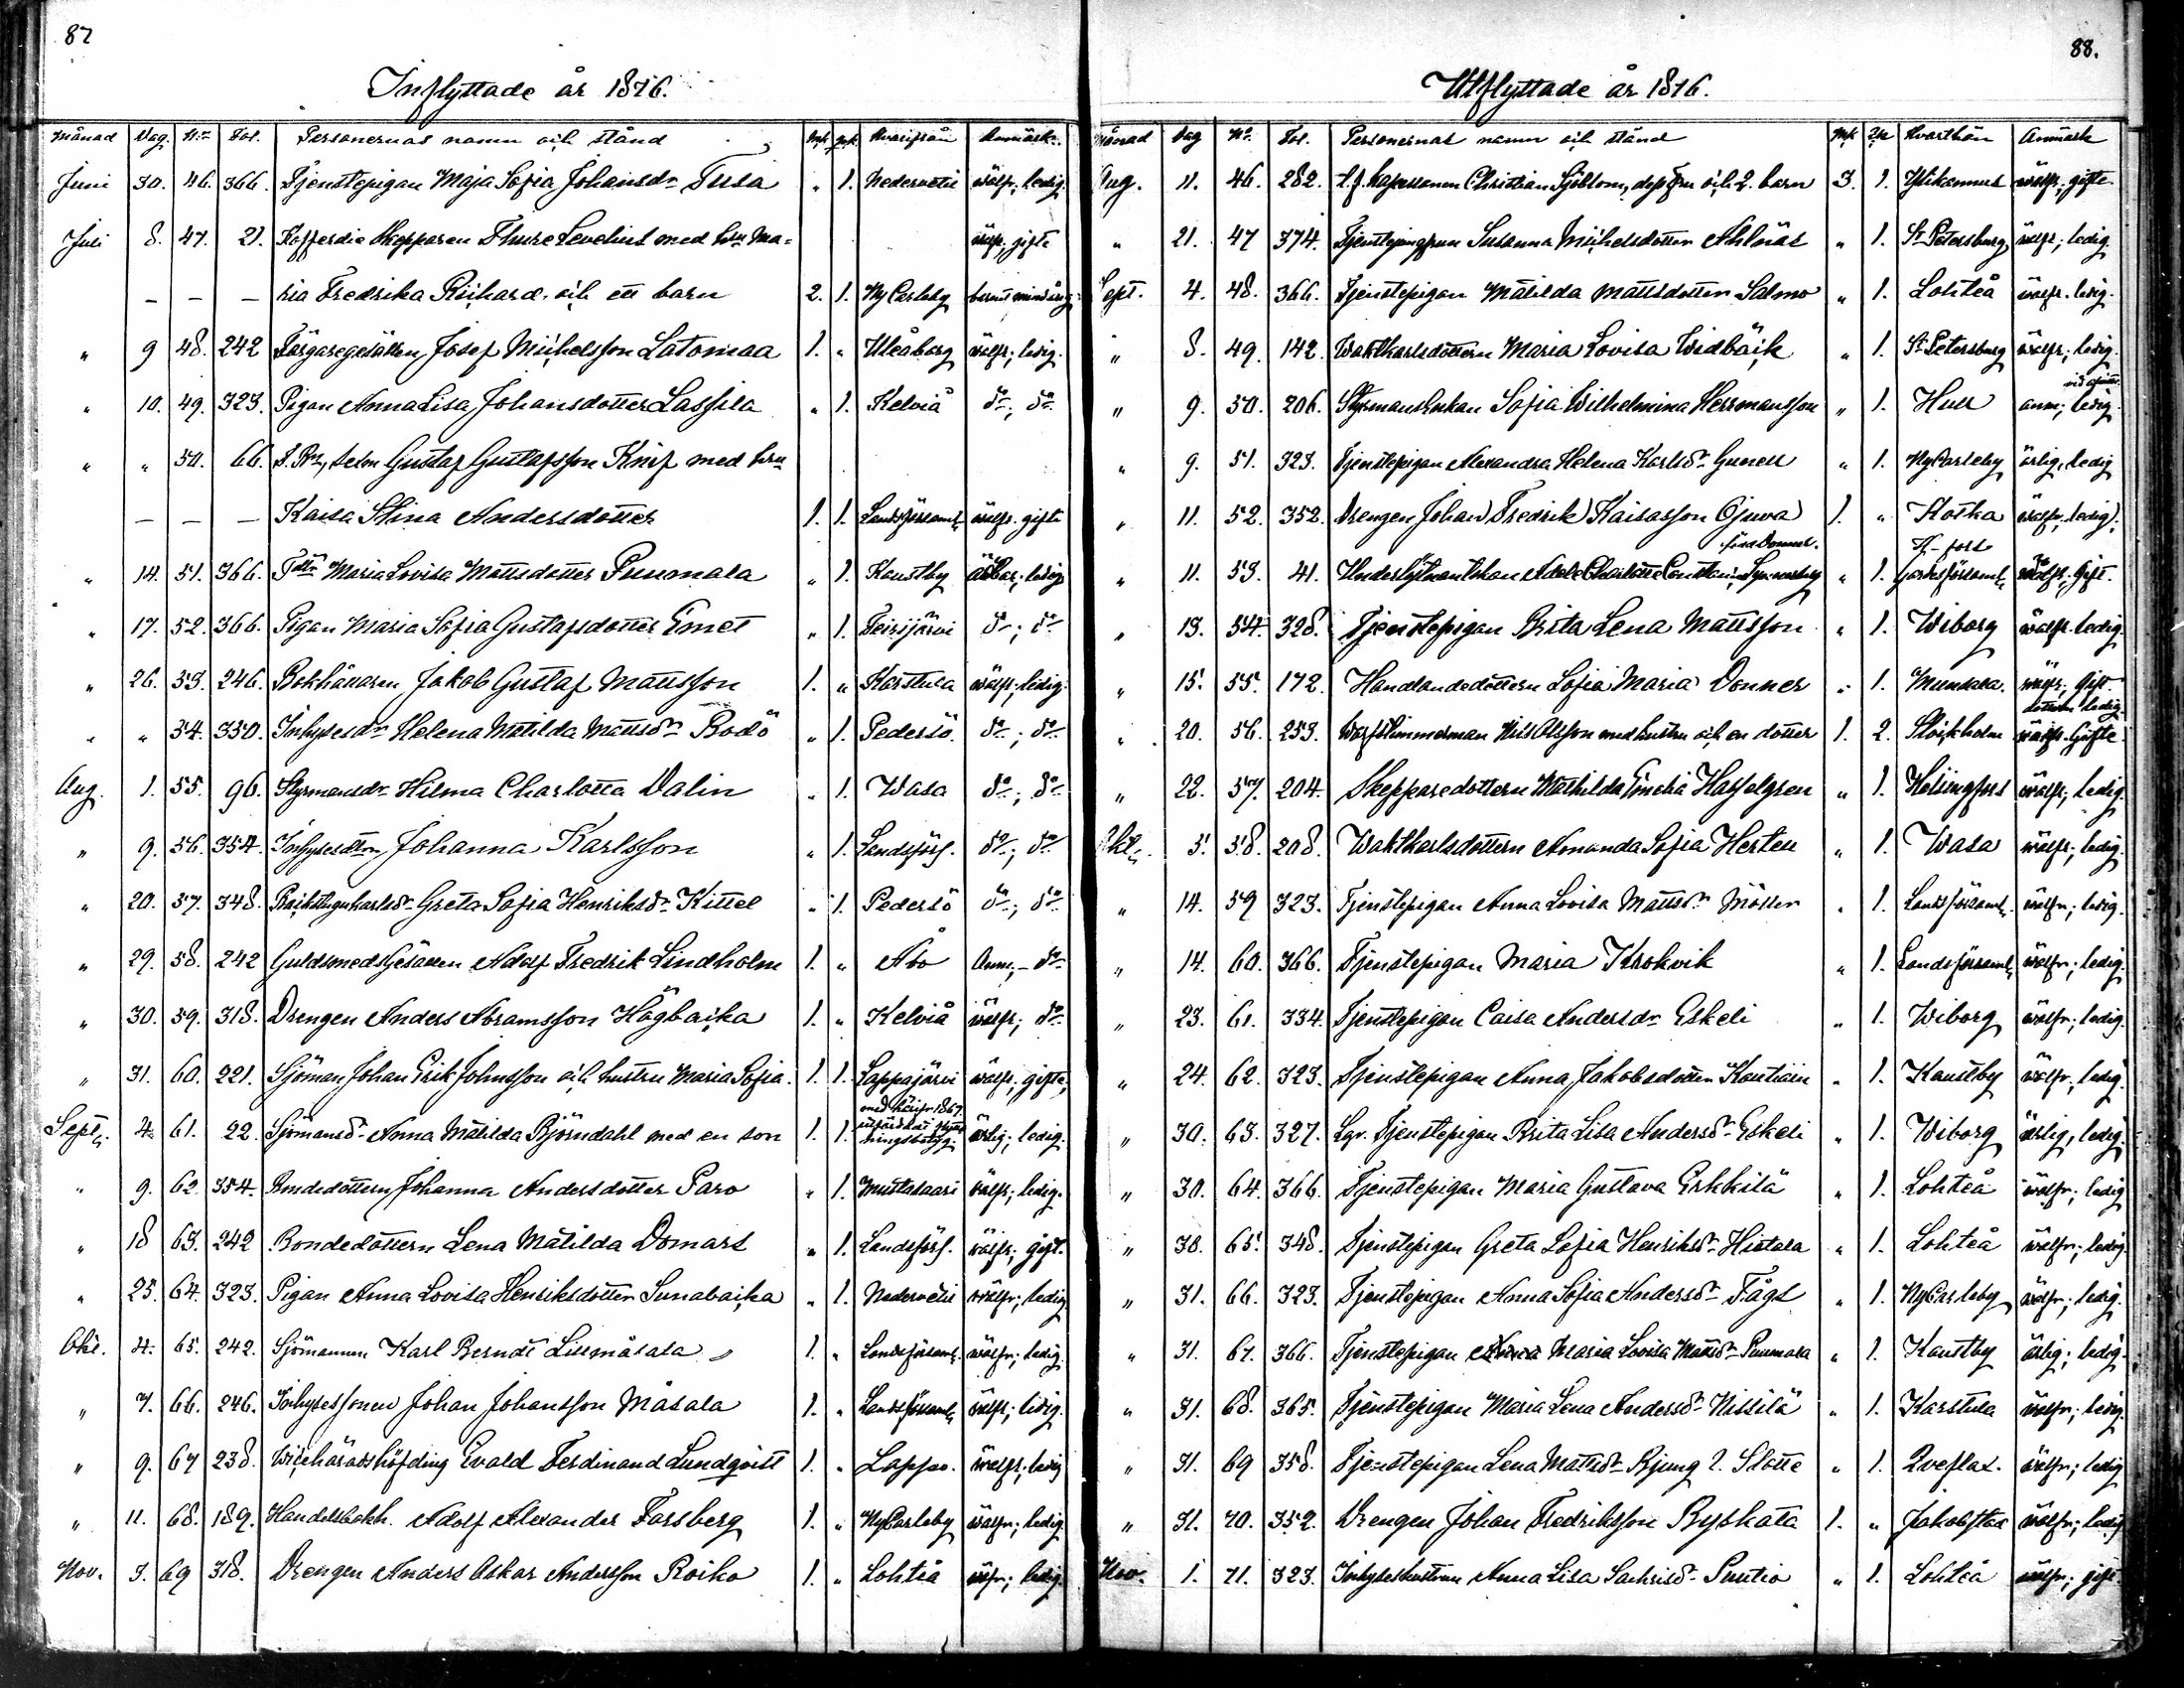 87
Inflyttade år 1876.
Månad Dag. No Fol. Personernas namn och stånd Mk. Qk. Hvarifrån Anmärk.
Juni 30. 46. 366. Tjenstepigan Maja Sofia Johansdr Tusa " 1. Nedervetil wälfr; ledig.
Juli 8. 47. 21. Kofferdie Skepparen Thure Sevelius med hru Ma- wälfr; gifte
— — — ria Fredrika Richard. och ett barn 2. 1. NyCarleby barnet minderårig
" 9 48. 242 Färgaregesällen Josef Michelsson Latomaa 1. " Uleåborg wälfr; ledig.
" 10. 49. 323. Pigan Anna Lisa Johansdotter Lassila " 1. Kelviå do; do
" " 50. 66. Gustaf Gustafsson Knif med hru
— — — Kaisa Stina Andersdotter 1. 1. Landsförsaml. wälfr. gifte
" 14. 51. 366. Maria Lovisa Mattsdotter Puumala " 1. Kaustby ledig
" 17. 52. 366. Pigan Maria Sofia Gustafsdotter Emet " 1. Teirijärvi do; do
" 26. 53. 246. Bokhållaren Jakob Gustaf Mattsson 1. " Karstula wälfr; ledig.
" " 54. 350. Inhysesdr Helena Matilda Mattsdr Bodö " 1. Pedersö. do; do
Aug. 1. 55. 96. Styrmansdr Hilma Charlotta Dalin " 1. Wasa do; do
" 9. 56. 354. Inhysesdttrn Johanna Karlsson " 1. Landsförs. do; do
" 20. 57. 348. Greta Sofia Henriksdr Kittel " 1. Pedersö do; do
" 29. 58. 242 Guldsmedsgesällen Adolf Fredrik Lindholm 1. " Åbo Anm; – do
" 30. 59. 318. Drengen Anders Abramsson Högbacka 1. " Kelviå wälfr; do
" 31. 60. 221. Sjöman Johan Erik Johnsson och hustru Maria Sofia. 1. 1. Lappajärvi wälfr; gifte,
Sept. 4. 61. 22. Sjömansdr Anna Matilda Björndahl med en son 1. 1. ärlig; ledig.
" 9. 62. 354. Bondedottern Johanna Andersdotter Paro " 1. Mustasaari wälfr; ledig.
" 18 63. 242 Bondedottern Lena Matilda Domars " 1. Landsförs. wälfr; gift.
" 25. 64. 323. Pigan Anna Lovisa Henriksdotter Sunabacka " 1. Nedervetil wälfr; ledig
Okt. 4. 65. 242. Sjömannen Karl Berndt Lillmåsala 1. " Landsförsaml. wälfr; ledig.
" 7. 66. 246. Inhysessonen Johan Johansson Måsala 1. " Landsförsaml. wälfr; ledig.
" 9. 67 238. Wicehäradshöfding Evald Ferdinand Lundqvist 1. " Lappo. wälfr; ledig
" 11. 68. 189. Handelsbokh. Adolf Alexander Forsberg 1. " NyCarleby wälfr; ledig.
Nov. 3. 69 318. Drengen Anders Oskar Andersson Roiko 1. " Lohteå wälfr; ledig.
88.
Utflyttade år 1876.
Månad Dag No. Fol. Personernas namn och stånd Mk Qk Hvarthän Anmärk
Aug. 11. 46. 282. t.f. Kapellanen Christian Sjöblom, dess fru och 2. barn 3. 1. Ylikannus wälfr; gifte
" 21. 47 374. Susanna Michelsdotter Ahlnäs " 1. St Petersburg wälfr; ledig.
Sept. 4. 48. 366. Tjenstepigan Matilda Mattsdotter Salmo " 1. Lohteå wälfr. ledig.
" 8. 49. 142. Waktkarlsdottern Maria Lovisa Widbäck " 1. St Petersburg wälfr; ledig.
" 9. 50. 206. Styrmansenkan Sofia Wilhelmina Herrmansson " 1. Hull anm; ledig.
" 9. 51. 323. Tjenstepigan Alexandra Helena Karlsdr Gunell " 1. NyCarleby ärlig, ledig
" 11. 52. 352. Drengen Johan Fredrik Kaisasson Ojuva 1. " Kotka wälfr; ledig.
född Donner.
" 11. 53. 41. Underlöjtnantskan Adele Charlotte Constance " 1. H-fors Gardesförsaml. wälfr; Gift.
" 13. 54. 328. Tjenstepigan Brita Lena Mattsson " 1. Wiborg wälfr. ledig.
" 15. 55. 172. Handlandedottern Sofia Maria Donner " 1. Munsala. wälfr; Gift.
dottern ledig
" 20. 56. 253. Warfstimmerman Nils Olsson med hustru och en dotter 1. 2. Stockholm wälfr. Gifte.
" 22. 57. 204. Skepparedottern Mathilda Emelia Hasselgren " 1. Helsingfors wälfr; ledig.
Okt. 5. 58. 208. Waktkarlsdottern Amanda Sofia Herten " 1. Wasa wälfr; ledig.
" 14. 59 323. Tjenstepigan Anna Lovisa Mattsdr Möller " 1. Landsförsaml. wälfr; ledig.
" 14. 60. 366. Tjenstepigan Maria Krokvik " 1. Landsförsaml. wälfr; ledig.
" 23. 61. 334. Tjenstepigan Caisa Andersdr Eskeli " 1. Wiborg wälfr; ledig.
" 24. 62. 323. Tjenstepigan Anna Jakobsdotter Kautiain " 1. Kaustby wälfr; ledig.
" 30. 63. 327. Lgr. Tjenstepigan Brita Lisa Andersdr Eskeli " 1. Wiborg ärlig, ledig.
" 30. 64. 366. Tjenstepigan Maria Gustava Erkkilä " 1. Lohteå wälfr; ledig
" 30. 65. 348. Tjenstepigan Greta Sofia Henriksdr Hietala " 1. Lohteå wälfr; ledig
" 31. 66. 323. Tjenstepigan Anna Sofia Andersdr Tågs " 1. NyCarleby wälfr; ledig.
" 31. 67. 366. Tjenstepigan Maria Lovisa Mattsdr Puumala " 1. Kaustby ärlig; ledig.
" 31. 68. 365. Tjenstepigan Maria Lena Andersdr Nissilä " 1. Karstula wälfr; ledig.
" 31. 69 358. Tjenstepigan Lena Mattsdr Bjung l. Slotte " 1. Qveflax. wälfr; ledig
" 31. 70. 352. Drengen Johan Fredriksson Ryskata 1. " Jakobstad wälfr; ledig
Nov. 1. 71. 323. Inhyseshustrun Anna Lisa Sachrisdr Puutio " 1. Lohteå wälfr; gift.